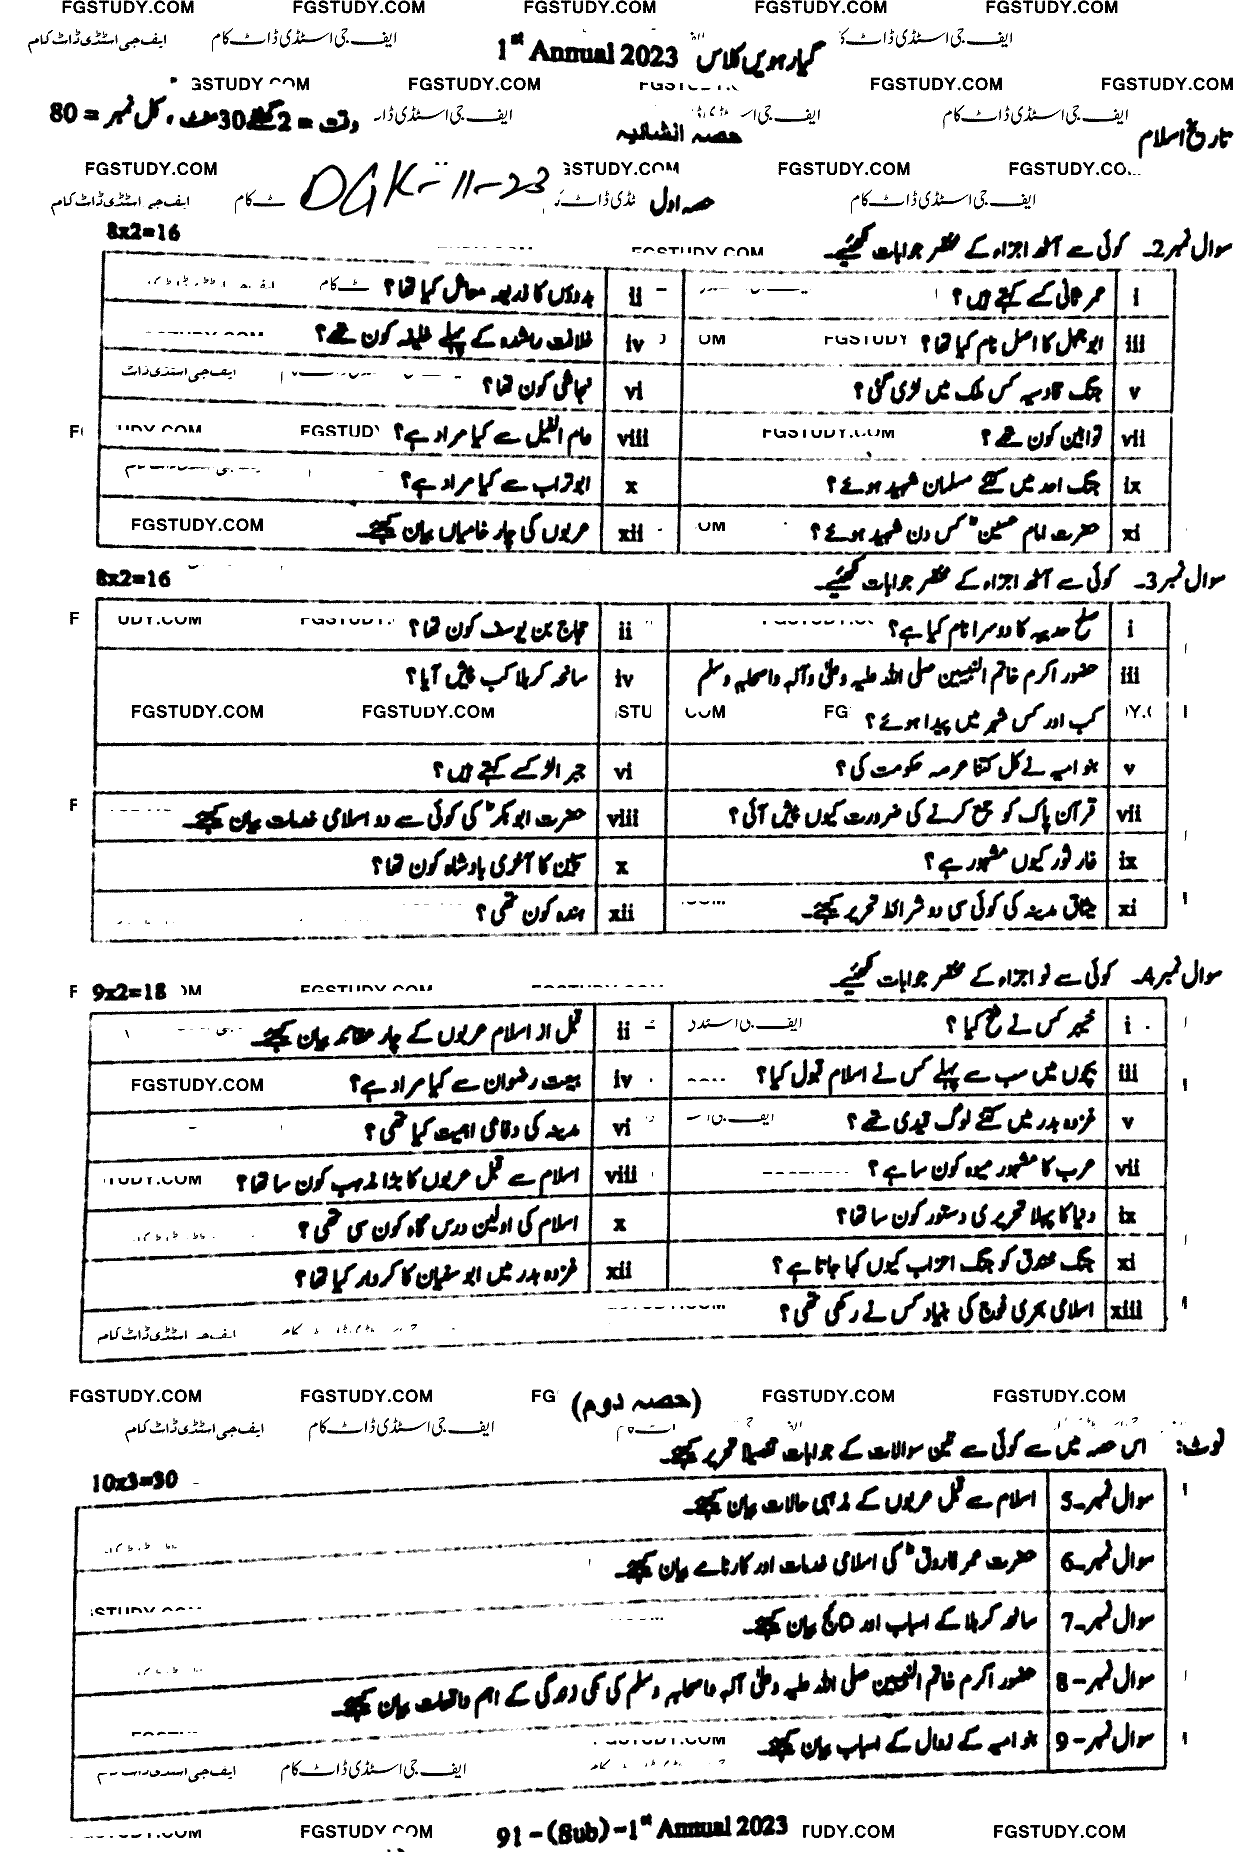 FGSTUDY.COM FGSTUDY.COM FGSTUDY.COM FGSTUDY.COM FGSTUDY.COM
ایف جی اسٹڈی ڈاٹ کام ایف جی اسٹڈی ڈاٹ کام ایف جی اسٹڈی ڈاٹ کام
گیارہویں کلاس 1st Annual 2023
GSTUDY.COM FGSTUDY.COM FGSTUDY.COM FGSTUDY.COM
تاریخ اسلام حصہ انشائیہ وقت = 2 گھنٹے 30 منٹ ، کل نمبر = 80
FGSTUDY.COM GSTUDY.COM FGSTUDY.COM FGSTUDY.CO
حصہ اول DGK-11-23
سوال نمبر 2۔ کوئی سے آٹھ اجزاء کے مختصر جوابات لکھیئے۔ 8x2=16
i عمر ثانی کسے کہتے ہیں؟ ii بدوؤں کا ذریعہ معاش کیا تھا؟
iii ابوجہل کا اصل نام کیا تھا؟ iv خلافت راشدہ کے پہلے خلیفہ کون تھے؟
v جنگ قادسیہ کس ملک میں لڑی گئی؟ vi نجاشی کون تھا؟
vii توابین کون تھے؟ viii عام الفیل سے کیا مراد ہے؟
ix جنگ احد میں کتنے مسلمان شہید ہوئے؟ x ابوتراب سے کیا مراد ہے؟
xi حضرت امام حسینؓ کس دن شہید ہوئے؟ xii عربوں کی چار خامیاں بیان کیجئے۔
سوال نمبر 3۔ کوئی سے آٹھ اجزاء کے مختصر جوابات لکھیئے۔ 8x2=16
i صلح حدیبیہ کا دوسرا نام کیا ہے؟ ii حجاج بن یوسف کون تھا؟
iii حضور اکرم خاتم النبیین صلی اللہ علیہ وعلیٰ وآلہ واصحابہ وسلم iv سانحہ کربلا کب پیش آیا؟
کب اور کس شہر میں پیدا ہوئے؟
v بنو امیہ نے کل کتنا عرصہ حکومت کی؟ vi جبر الٹر کسے کہتے ہیں؟
vii قرآن پاک کو جمع کرنے کی ضرورت کیوں پیش آئی؟ viii حضرت ابوبکرؓ کی کوئی سے دو اسلامی خدمات بیان کیجئے۔
ix غار ثور کیوں مشہور ہے؟ x سپین کا آخری بادشاہ کون تھا؟
xi میثاق مدینہ کی کوئی سی دو شرائط تحریر کیجئے۔ xii ہندہ کون تھی؟
سوال نمبر 4۔ کوئی سے نو اجزاء کے مختصر جوابات لکھیئے۔ 9x2=18
i خیبر کس نے فتح کیا؟ ii قبل از اسلام عربوں کے چار عقائد بیان کیجئے۔
iii بچوں میں سب سے پہلے کس نے اسلام قبول کیا؟ iv بیعت رضوان سے کیا مراد ہے؟
v غزوہ بدر میں کتنے لوگ قیدی تھے؟ vi مدینہ کی دفاعی اہمیت کیا تھی؟
vii عرب کا مشہور میوہ کون سا ہے؟ viii اسلام سے قبل عربوں کا بڑا مذہب کون سا تھا؟
ix دنیا کا پہلا تحریری دستور کون سا تھا؟ x اسلام کی اولین درس گاہ کون سی تھی؟
xi جنگ خندق کو جنگ احزاب کیوں کہا جاتا ہے؟ xii غزوہ بدر میں ابوسفیان کا کردار کیا تھا؟
xiii اسلامی بحری فوج کی بنیاد کس نے رکھی تھی؟
FGSTUDY.COM FGSTUDY.COM FG (حصہ دوم) FGSTUDY.COM FGSTUDY.COM
نوٹ: اس حصہ میں سے کوئی سے تین سوالات کے جوابات تفصیلاً تحریر کیجئے۔ 10x3=30
سوال نمبر-5 اسلام سے قبل عربوں کے مذہبی حالات بیان کیجئے۔
سوال نمبر-6 حضرت عمر فاروقؓ کی اسلامی خدمات اور کارنامے بیان کیجئے۔
سوال نمبر-7 سانحہ کربلا کے اسباب اور نتائج بیان کیجئے۔
سوال نمبر-8 حضور اکرم خاتم النبیین صلی اللہ علیہ وعلیٰ آلہ واصحابہ وسلم کی مکی زندگی کے اہم واقعات بیان کیجئے۔
سوال نمبر-9 بنو امیہ کے زوال کے اسباب بیان کیجئے۔
ایف جی اسٹڈی ڈاٹ کام ایف جی اسٹڈی ڈاٹ کام
FGSTUDY.COM 91-(Sub)-1st Annual 2023 TUDY.COM FGSTUDY.COM